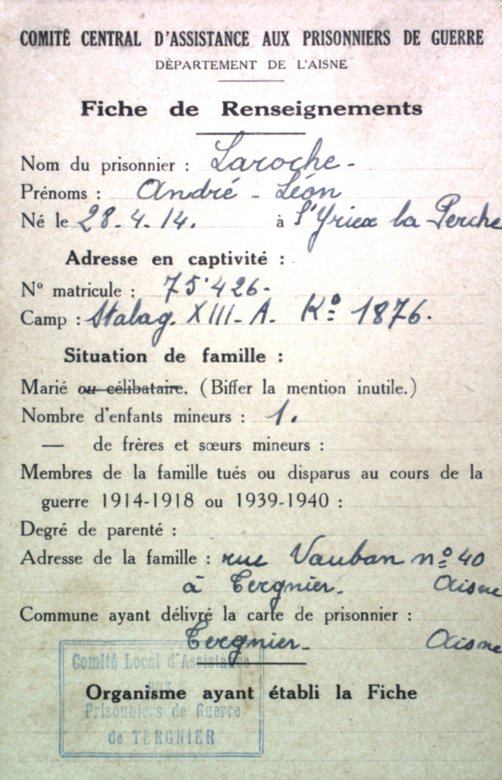 COMITÉ CENTRAL D'ASSISTANCE AUX PRISONNIERS DE GUERRE
DÉPARTEMENT DE L'AISNE
Fiche de Renseignements
Nom du prisonnier : Laroche -
Prénoms : André - Léon
Né le 28-4-14. à St Yriex la Perche
Adresse en captivité :
N° matricule : 75426 -
Camp : Stalag. XIII - A. Kº 1876.
Situation de famille :
Marié ou célibataire. (Biffer la mention inutile.)
Nombre d'enfants mineurs : 1.
— de frères et sœurs mineurs :
Membres de la famille tués ou disparus au cours de la
guerre 1914-1918 ou 1939-1940 :
Degré de parenté :
Adresse de la famille : rue Vauban nº 40
à Tergnier. Aisne
Commune ayant délivré la carte de prisonnier :
Tergnier - Aisne
Comité Local d'Assistance
aux
Prisonniers de Guerre
de TERGNIER
Organisme ayant établi la Fiche